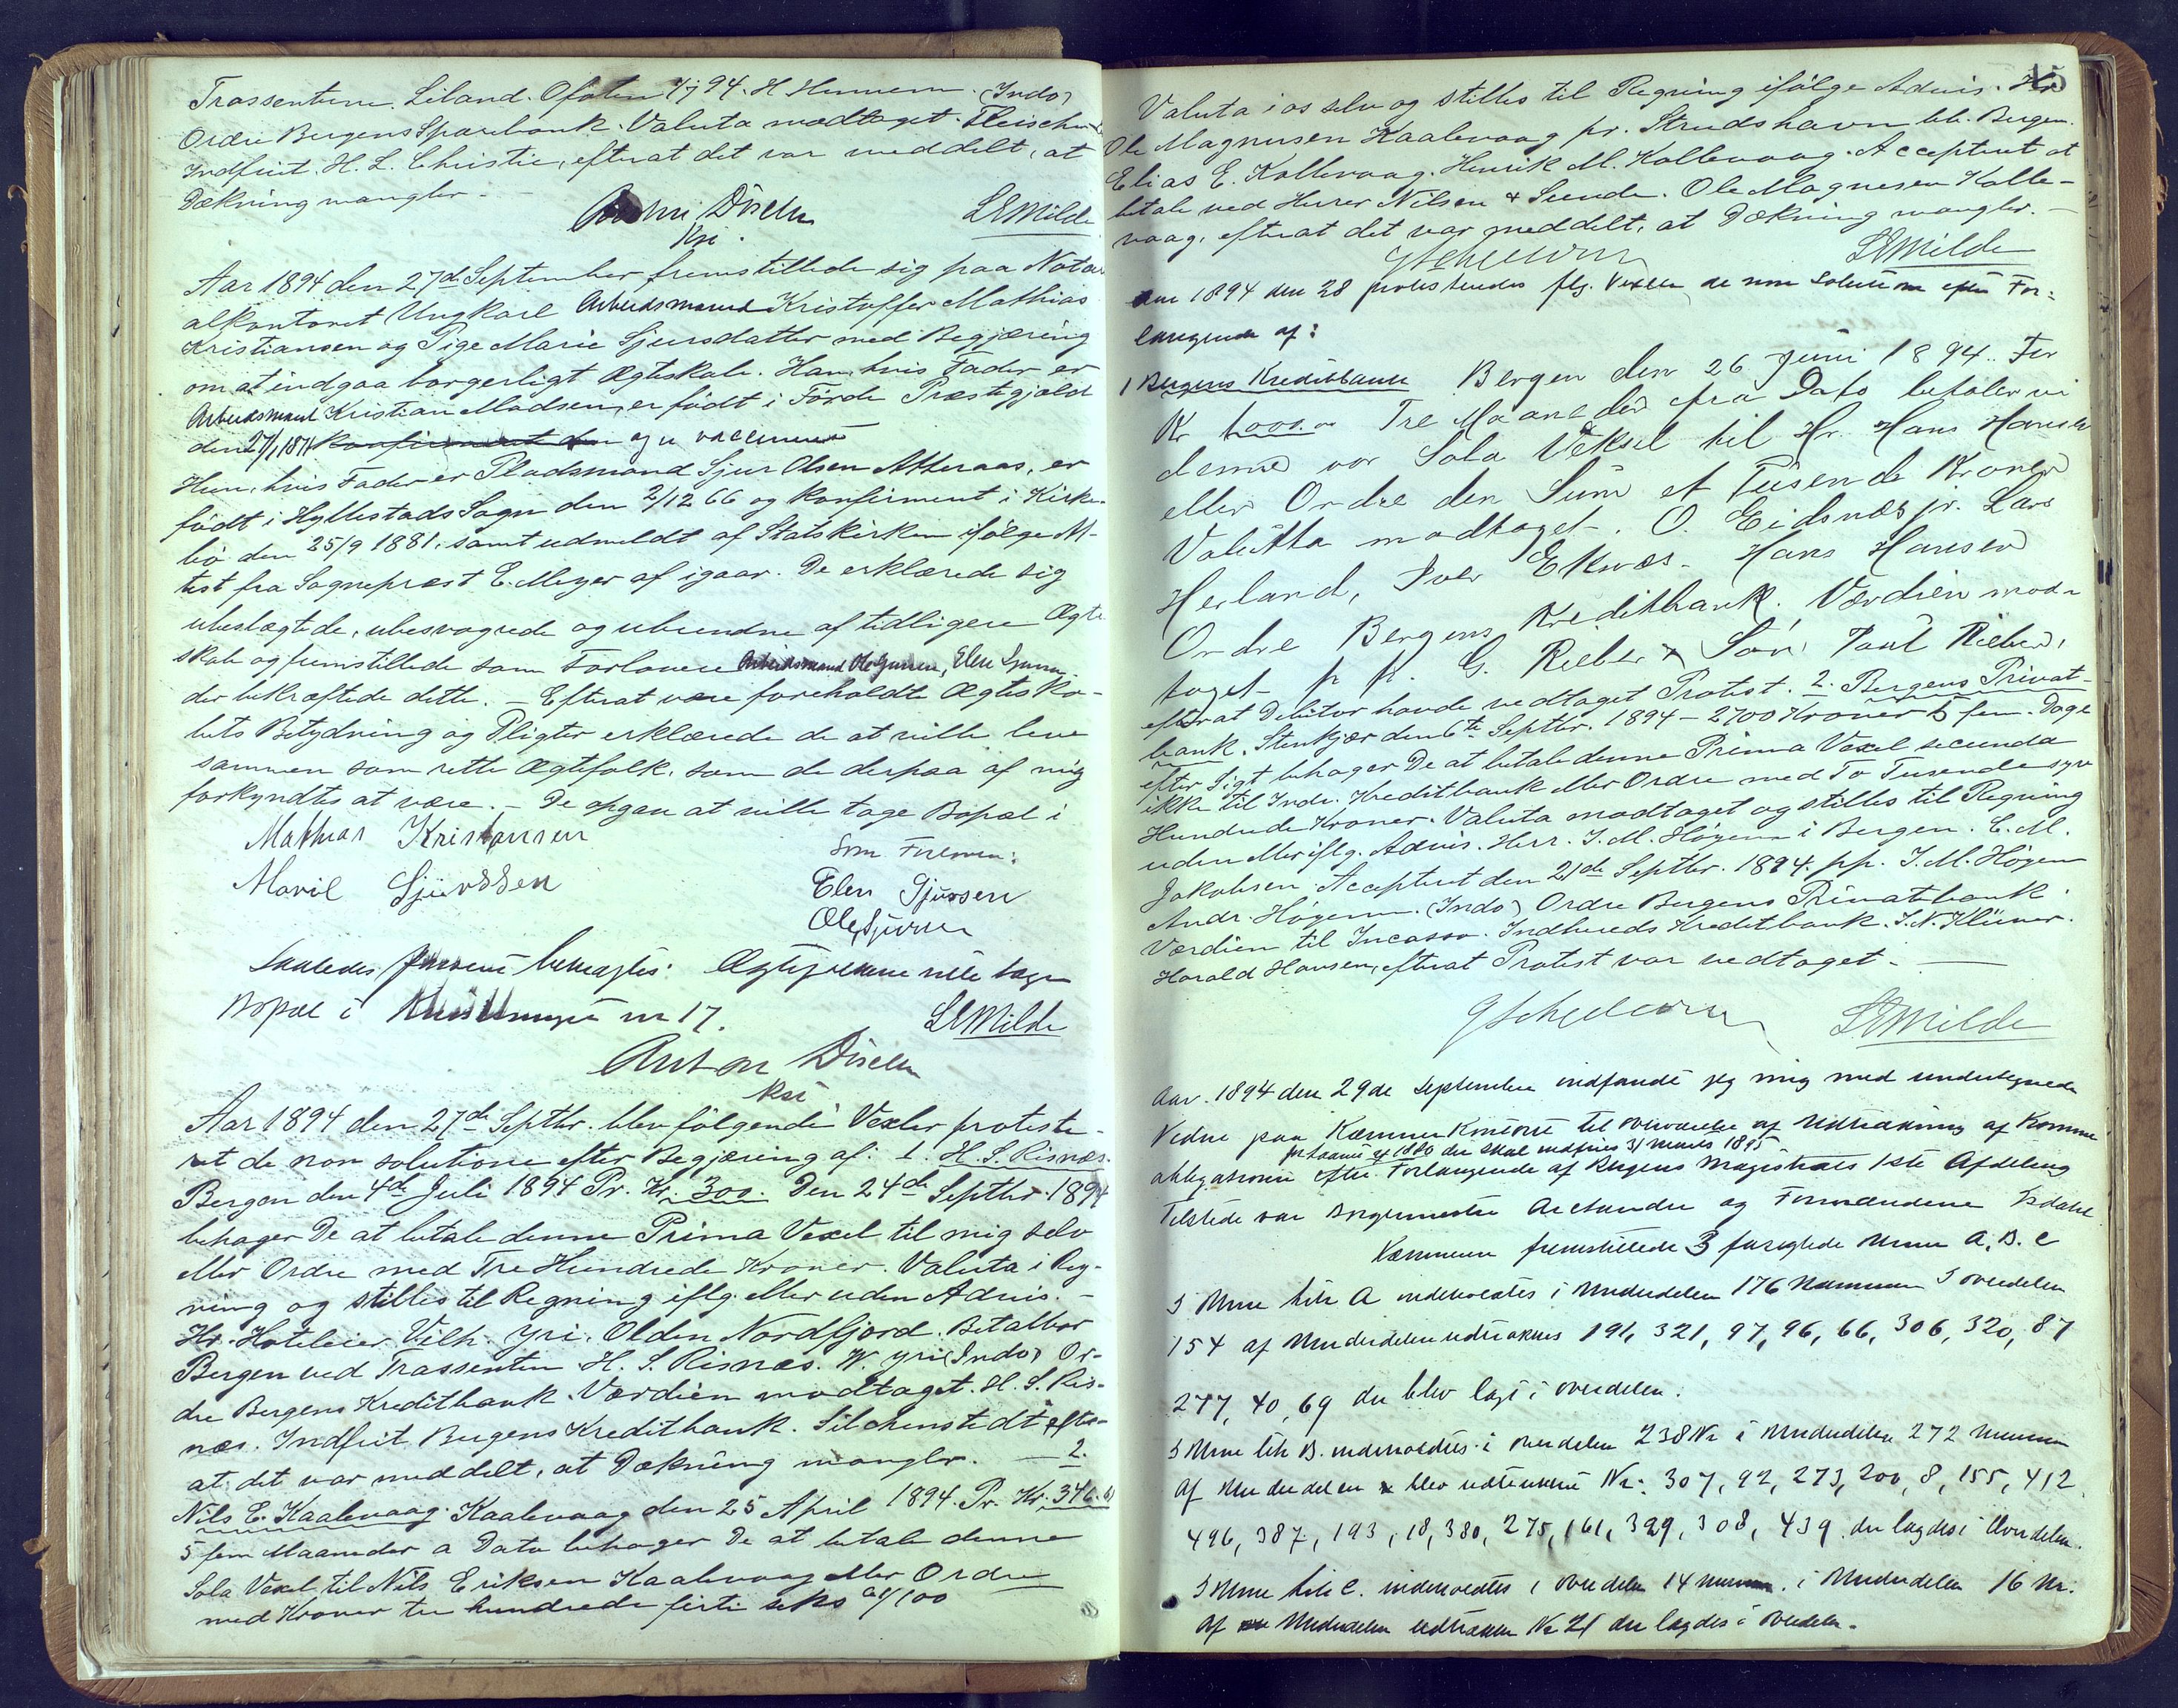 Trassenten. Liland. Ofoten 7/7 94. H Hennem. (Indo)
Ordre Bergens Sparebank. Valuta modtaget. Fleischer
Indfriet. H. L. Christie, efterat det var meddelt, at
Dækning mangler -
LEMilde
Aar 1894 den 27de September fremstillede sig paa Notari
alkontoret Ungkarl Arbeidsmand Kristoffer Mathias
Kristiansen og Pige Marie Sjursdatter med Begjæring
om at indgaa borgerligt Ægteskab. Han, hvis Fader er
Arbeidsmand Kristian Madsen, er født i Førde Præstegjæld
den 27/1 1871 Konfirmeret den og er vaccineret
Hun, hvis Fader er Pladsmand Sjur Olsen Atteraas, er
født i Hyllestads Sogn den 2/12 66 og konfirmeret i Kirke-
bø den 25/9 1881, samt udmeldt af Statskirken ifølge At-
test fra Sognepræst E. Meyer af igaar. De erklærede sig
ubeslægtede, ubesvogrede og ubundne af tidligere Ægte
skab og fremstillede som Forlovere Arbeidsmand Ole Sjursen, Elen Sjursen
der bekræftede dette. - Efterat være foreholdt Ægteska-
bets Betydning og Pligter erklærede de at ville leve
sammen som rette Ægtefolk, som de derpaa af mig
forkyndtes at være. - De opgav at ville tage Bopæl i
Mathias Kristansen
Som Forlovere:
Marie Sjurssen
Elen Sjurssen
Ole Sjursen
Saaledes passeret bekræftes. Ægtefolkene ville tage
Bopæl i no 17.
LEMilde
Anton
Aar 1894 den 27de Septbr. blev følgende Vexler proteste-
ret de non solutione efter Begjæring af: 1. H. S. Risnæs.
Bergen den 4de Juli 1894 Pr. Kr. 300. Den 24de Septbr. 1894
behager De at betale denne Prima Vexel til mig selv
eller Ordre med Tre Hundrede Kroner. Valuta i Reg-
ning og stilles til Regning iflg. eller uden Advis. -
Hr. Hoteleier Vilh. Yri. Olden Nordfjord. Betalbar
Bergen ved Trassenten H. S. Risnæs. W. Yri (Indo) Or-
dre Bergens Kreditbank. Værdien modtaget. H. S. Ris-
næs. Indfriet Bergens Kreditbank. Silchenstedt efter-
at det var meddelt, at Dækning mangler. - 2.
Nils E. Kaalevaag. Kaalevaag den 25 April 1894. Pr. Kr. 346.
5 fem Maaneder a Dato behager De at betale denne
Sola Vexel til Nils Eriksen Kaalevaag eller Ordre
med Kroner tre hundrede førti seks
15
Valuta i os selv og stilles til Regning ifølge Advis. Hr
Ole Magnusen Kaalevaag pr. Strudshavn bb. Bergen.
Elias E. Kallevaag. Henrik M. Kallevaag. Accepteret at
betale ved Herrer Nilsen & Sunde. Ole Magnesen Kalle-
vaag, efterat det var meddelt, at Dækning mangler. -
LEMilde
Aar 1894 den 28 protesteredes flg. Vexler de non Solutione efter For-
langende af:
1 Bergens Kreditbank Bergen den 26 Juni 1894. For
Kr 1,000.00 Tre Maaneder fra Dato betaler vi
denne vor Sola Veksel til Hr. Hans Hansen
eller Ordre den Sum et Tusende Kroner
Valutta modtaget. O. Eidsnæs jr. Lars
Herland, Iver Eknæs. Hans Hansen
Ordre Bergens Kreditbank. Værdien mod-
taget p p. G. Rieber & Søn Paul Rieber,
efterat Debitor havde vedtaget Protest. 2. Bergens Privat-
bank. Stenkjær den 6te Septbr. 1894 - 2700 Kroner 5 fem Dage
efter Sigt behager De at betale denne Prima Vexel secunda
ikke til Indr. Kreditbank eller Ordre med To Tusende syv
Hundrede Kroner. Valuta modtaget og stilles til Regning
uden eller iflg. Advis. Herr. J. M. Høgem i Bergen. E. M.
Jakobsen. Accepteret den 21de Septbr. 1894. pp. J. M. Høgem
Andr. Høgem. (Indo) Ordre Bergens Privatbank
Værdien til Incasso. Indhereds Kreditbank. J. N. Klüwer.
Harald Hansen, efterat Protest var vedtaget. -
LEMilde
Aar. 1894 den 29de September indfandt jeg mig med undertegnede
Vidne paa Kæmnerkontoret til Overværelse af Udtrækning af Kommune
for Laanet af 1880 der skal indfries 31 Marts 1895
obligationer efter Forlangende af Bergens Magistrats 1ste Afdeling
Tilstede var Borgermester Arctander og Formændene Isdahl
Kæmneren fremstillede 3 forseglede Urner A. B. C
I Urne Litr A indeholdtes i Underdelen 176 Nummere I Overdelen
154 af Underdelen udtrakkes 191, 321, 97, 96, 66, 306, 320, 87
277, 40, 69 der blev lagt i Overdelen.
I Urne Litr B. indeholdtes i Overdelen 238 Nr i Underdelen 272 Numere
Af Underdelen blev udtrukket Nr: 307, 92, 273, 200, 8, 155, 412,
496, 387, 193, 18, 380, 275, 161, 329, 308, 439 der lagdes i Overdelen.
I Urne Litr C. indeholdtes i Overdelen 14 Numere. i Underdelen 16 Nr.
Af Underdelen udtrækkes No 21 der lagdes i Overdelen.